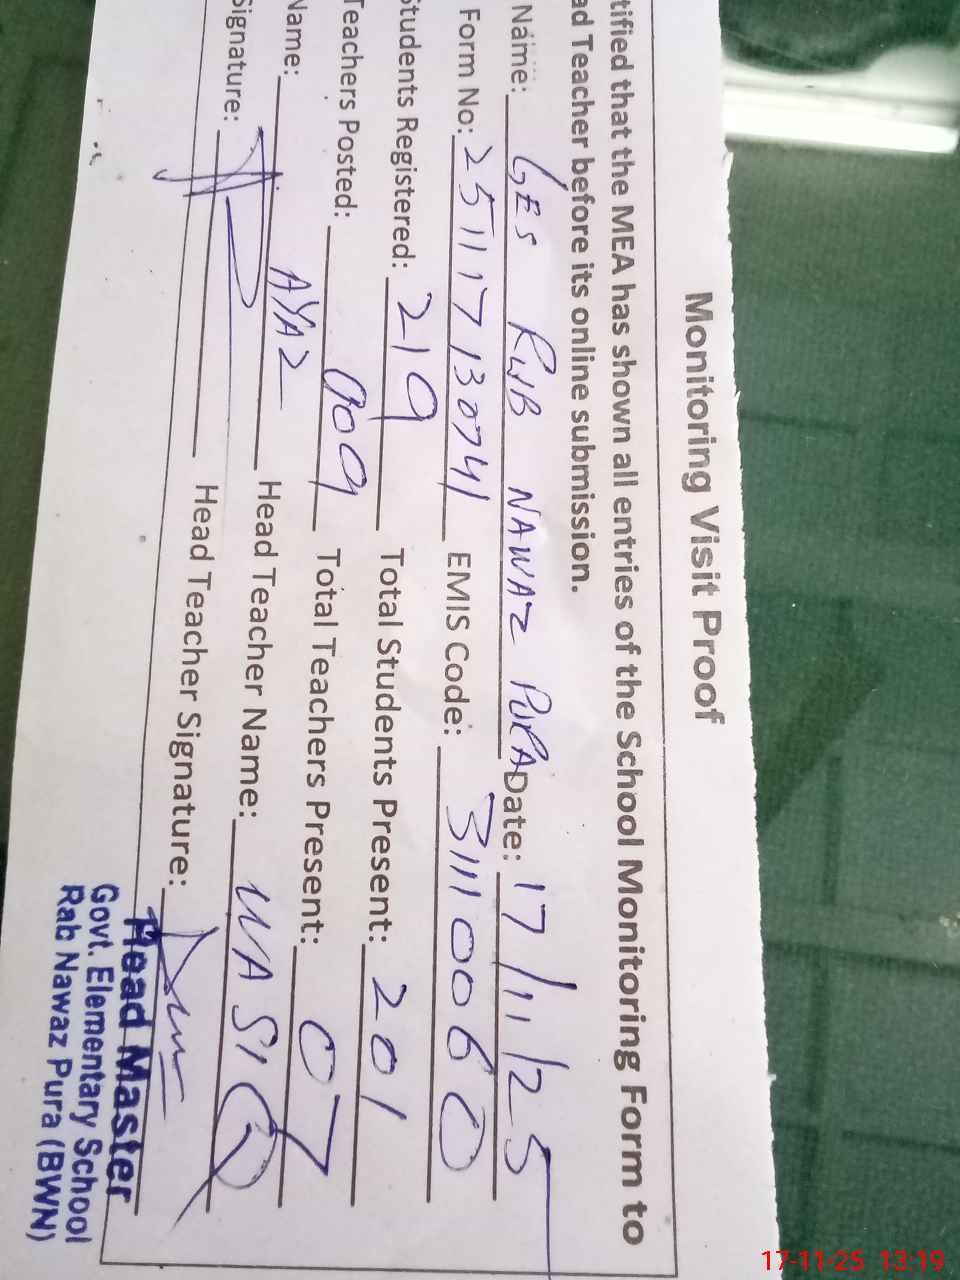 Monitoring Visit Proof
tified that the MEA has shown all entries of the School Monitoring Form to
ad Teacher before its online submission.
Name: GES RWB NAWAZ PURA Date: 17/11/25
Form No: 25117130741 EMIS Code: 31110060
Students Registered: 219 Total Students Present: 201
Teachers Posted: 009 Total Teachers Present: 07
Name: AYAZ Head Teacher Name: WASIQ
Signature: Head Teacher Signature:
Head Master
Govt. Elementary School
Rab Nawaz Pura (BWN)
17-11-25 13:19